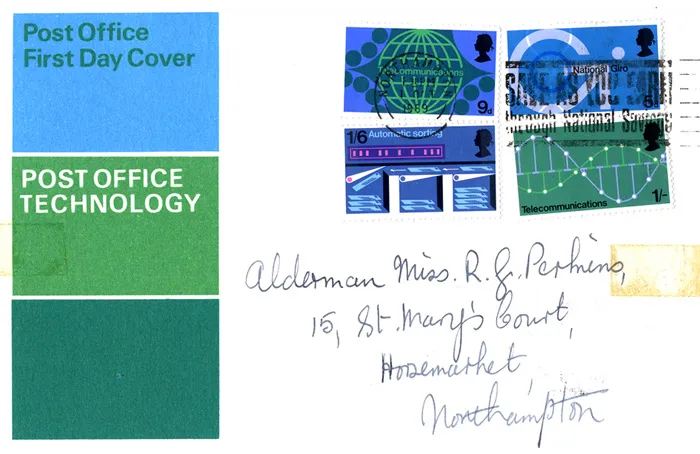 Post Office
First Day Cover
POST OFFICE
TECHNOLOGY
Telecommunications
9d
National Giro
5d
1969
SAVE AS YOU EARN
through National Savings
1/6 Automatic sorting
Telecommunications 1/-
Alderman Miss. R. G. Perkins,
15, St. Mary's Court,
Horsemarket,
Northampton